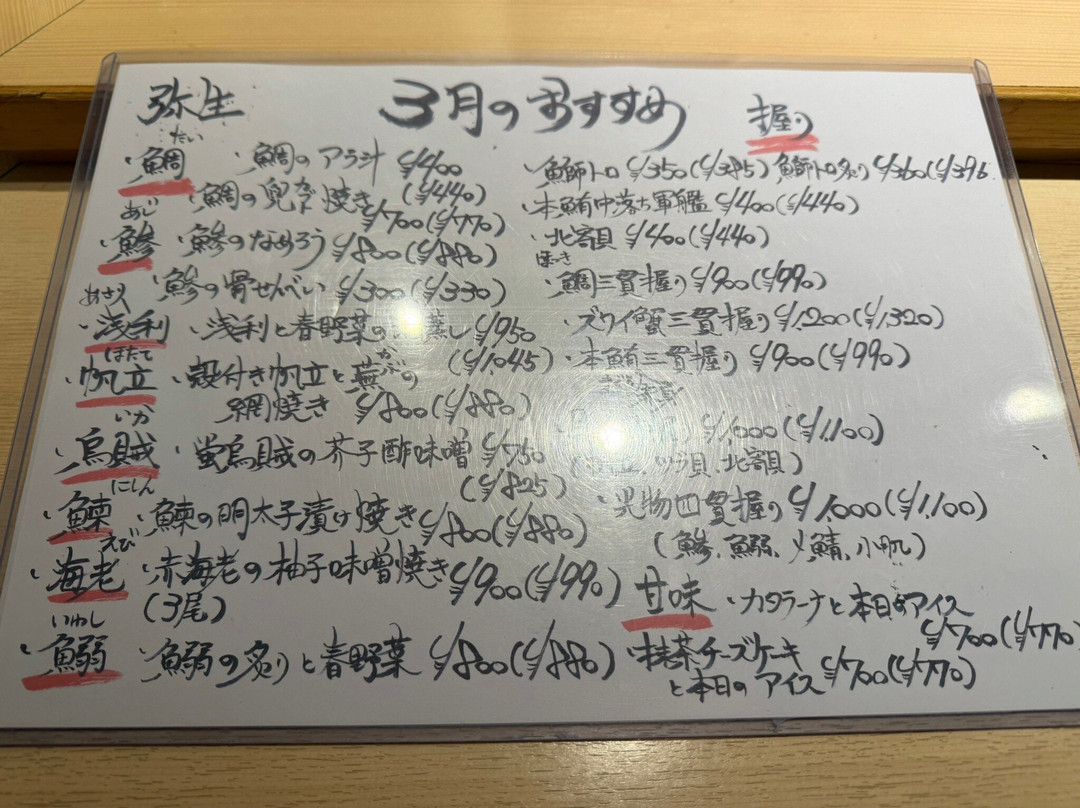 弥生 3月のおすすめ
たい
・鯛 ・鯛のアラ汁 ¥400
(¥440)
・鯛の兜焼き
カブト
¥700(¥770)
あじ
・鯵 ・鯵のなめろう ¥800(¥880)
・鯵の骨せんべい ¥300(¥330)
あさり
・浅利 ・浅利と春野菜の 蒸し ¥950
(¥1045)
ほたて
・帆立 ・殻付き帆立と蕪の
かぶ
網焼き ¥800(¥880)
いか
・烏賊 ・蛍烏賊の芥子酢味噌 ¥750
(¥825)
にしん
・鰊 ・鰊の明太子漬け焼き ¥800(¥880)
えび
・海老 ・赤海老の柚子味噌焼き ¥900(¥990)
(3尾)
いわし
・鰯 ・鰯の炙りと春野菜 ¥800(¥880)
握り
・鰤トロ ¥350(¥385) 鰤トロ炙り ¥360(¥396
・本鮪中落ち軍艦 ¥400(¥440)
・北寄貝 ¥400(¥440)
ほっき
・鯛三貫握り ¥900(¥990)
・ズワイ蟹三貫握り ¥1,200(¥1,320)
・本鮪三貫握り ¥900(¥990)
¥1,000(¥1,100)
ツブ貝、北寄貝)
・光物四貫握り ¥1,000(¥1,100)
(鯵、鰯、〆鯖、小肌)
甘味 ・カタラーナと本日のアイス
¥700(¥770)
・抹茶チーズケーキ
と本日のアイス ¥700(¥770)